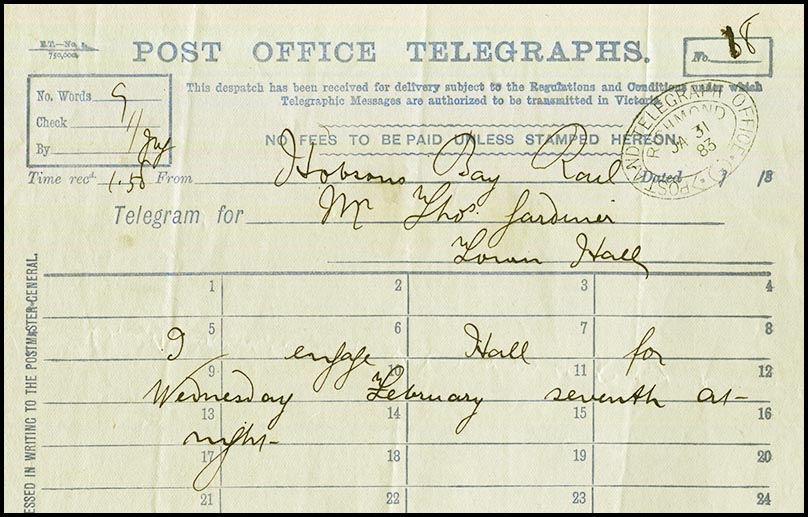 E.T.—No.
750,000.
POST OFFICE TELEGRAPHS.
No. 18
This despatch has been received for delivery subject to the Regulations and Conditions under which
Telegraphic Messages are authorized to be transmitted in Victoria.
No. Words 9
Check
By
NO FEES TO BE PAID UNLESS STAMPED HEREON.
POST AND TELEGRAPH OFFICE
RICHMOND
JA 31
83
Time recd. 1.50 From Hobsons Bay Rail Dated / /8
Telegram for Mr Thos. Gardiner
Town Hall
1 2 3 4
5 6 7 8
I engage Hall for
9 10 11 12
Wednesday February seventh at
13 14 15 16
night
17 18 19 20
21 22 23 24
ESSED IN WRITING TO THE POSTMASTER-GENERAL.